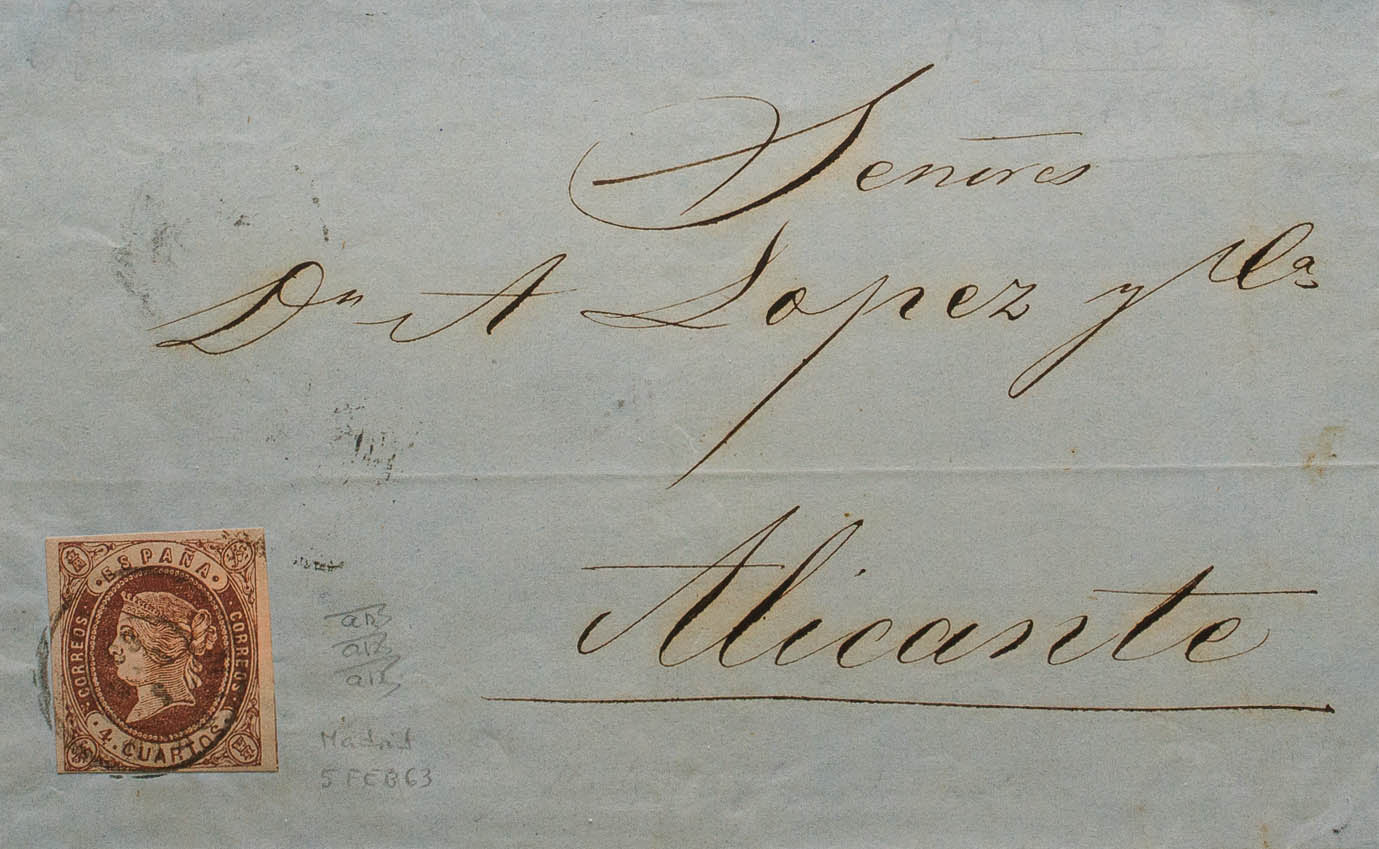 Señores
Dn A Lopez y Ca
Alicante
· ESPAÑA ·
· CORREOS ·
· CORREOS ·
· 4 · CUARTOS ·
Madrid
5 FEB 63